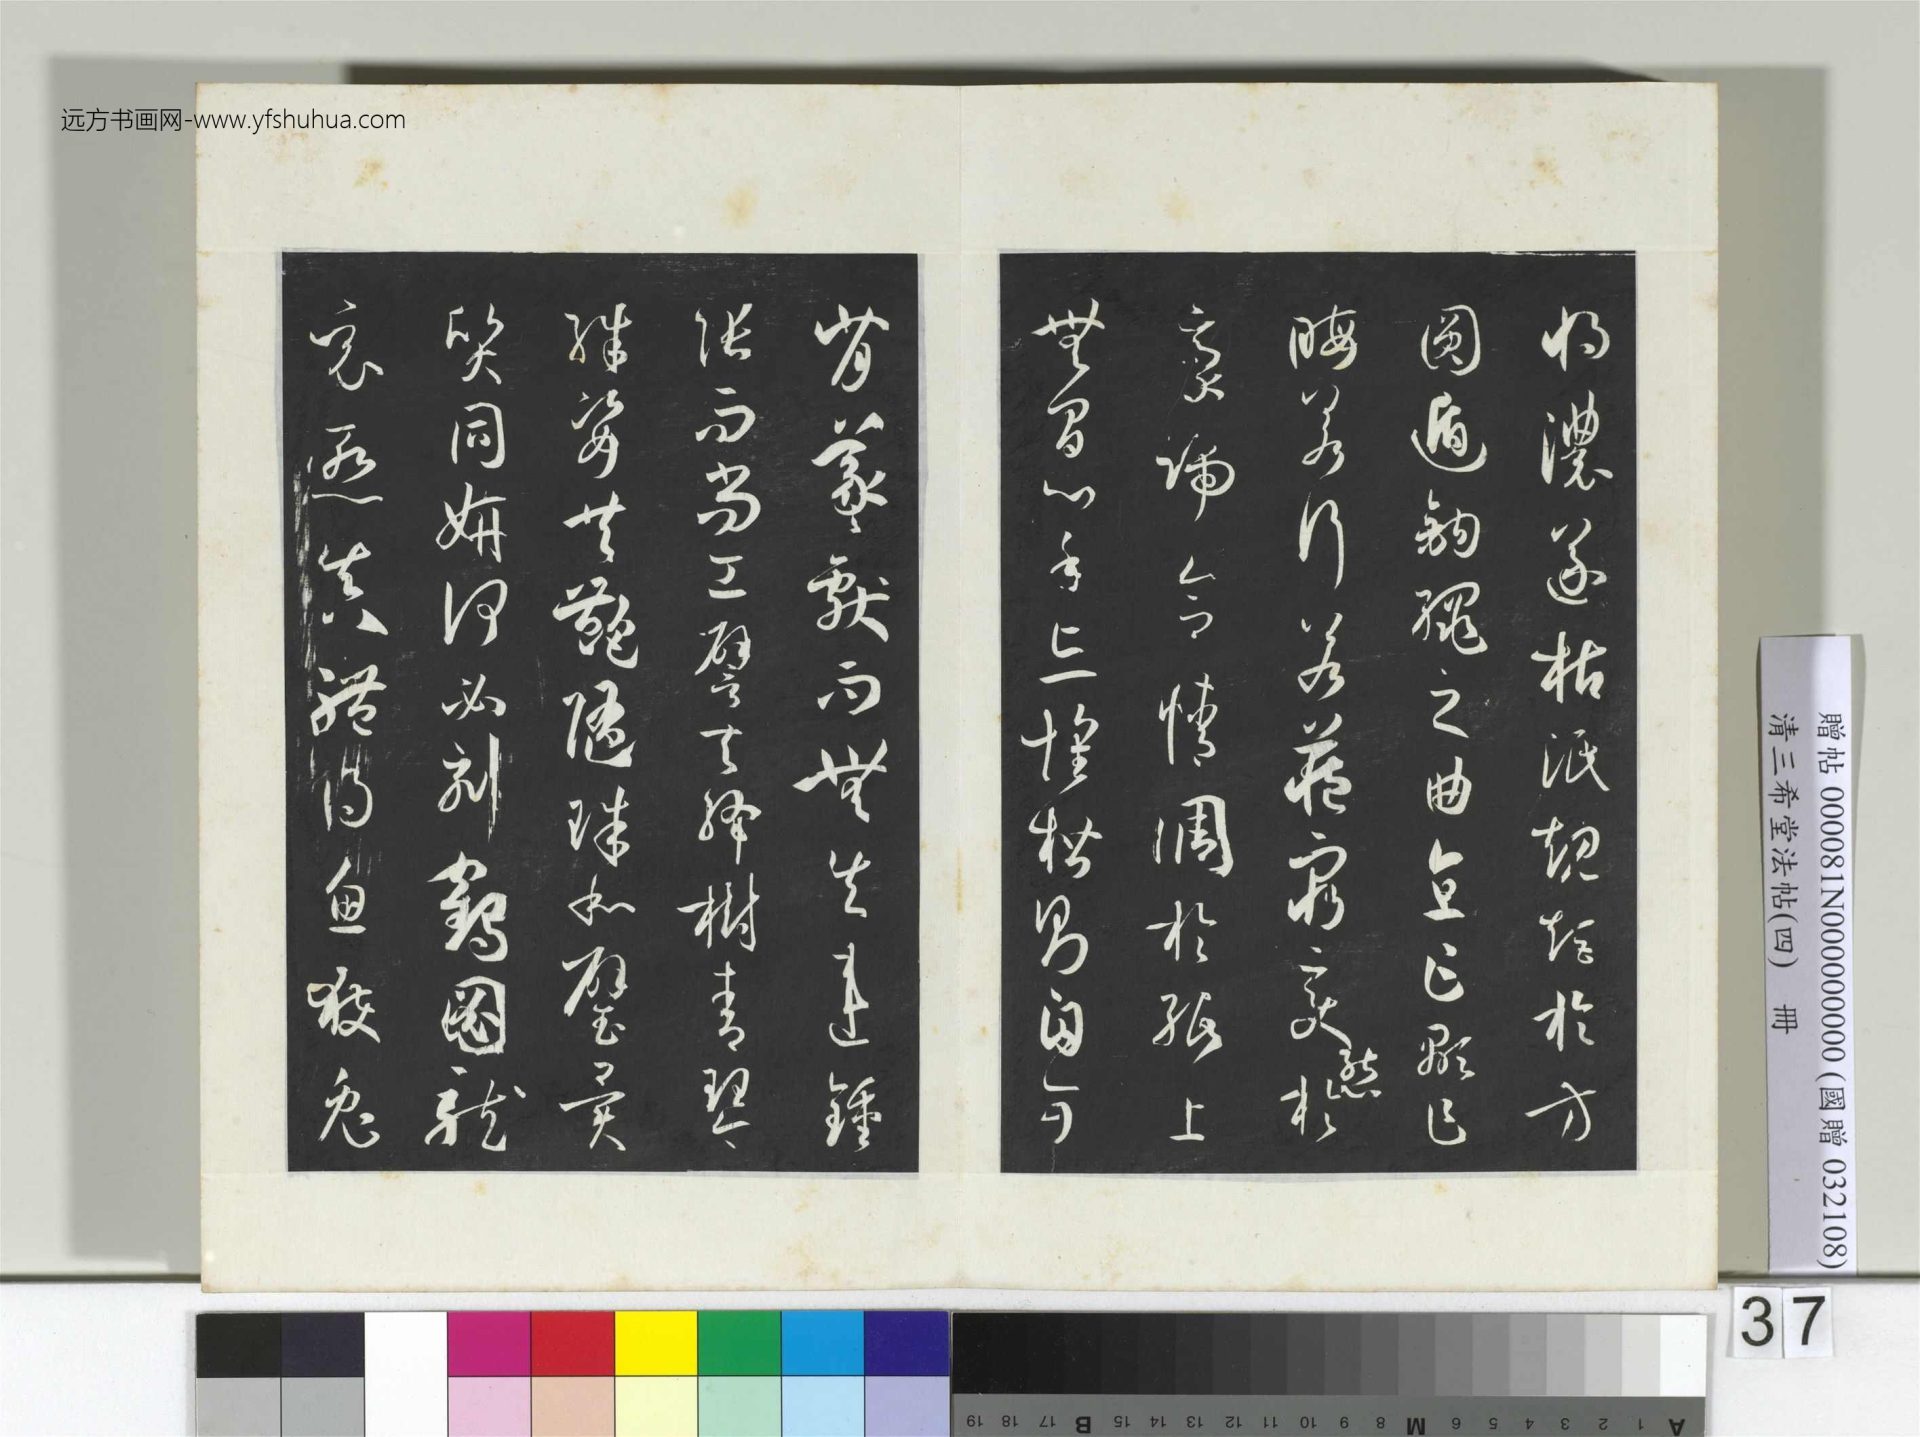 远方书画网-www.yfshuhua.com
將濃遂枯泯規矩於方
圓遁鉤繩之曲直乍顯乍
晦若行若藏窮變態於
豪端合情調於紙上
無間心手忘懷楷則自可
背羲獻而無失違鍾
張而尚工譬夫絳樹青琴
殊姿共艷隨珠和璧異
質同妍何必刻鶴圖龍
竟慚真體得魚獲兔
贈帖 000081N000000000 (國贈 032108)
清三希堂法帖(四) 冊
37
A 1 2 3 4 5 6 M 8 9 10 11 12 13 14 15 B 17 18 19